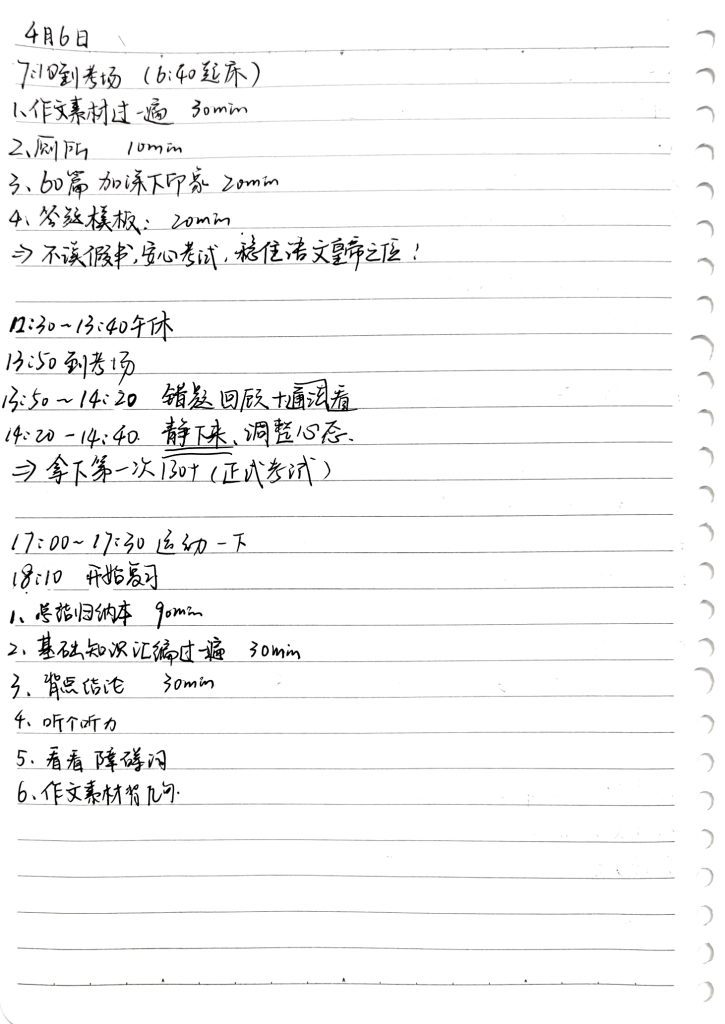 4月6日
7:10到考场 (6:40起床)
1、作文素材过一遍 30min
2、厕所 10min
3、60篇 加深下印象 20min
4、答题模板: 20min
⇒ 不读假书,安心考试,稳住语文皇帝之位!
12:30~13:40午休
13:50到考场
13:50~14:20 错题回顾+通法看
14:20-14:40. 静下来、调整心态.
⇒ 拿下第一次130+(正式考试)
17:00~17:30 运动一下
18:10 开始复习
1、总结归纳本 90min
2、基础知识汇编过一遍 30min
3、背点结论 30min
4、听个听力
5、看看障碍词
6、作文素材背几句.